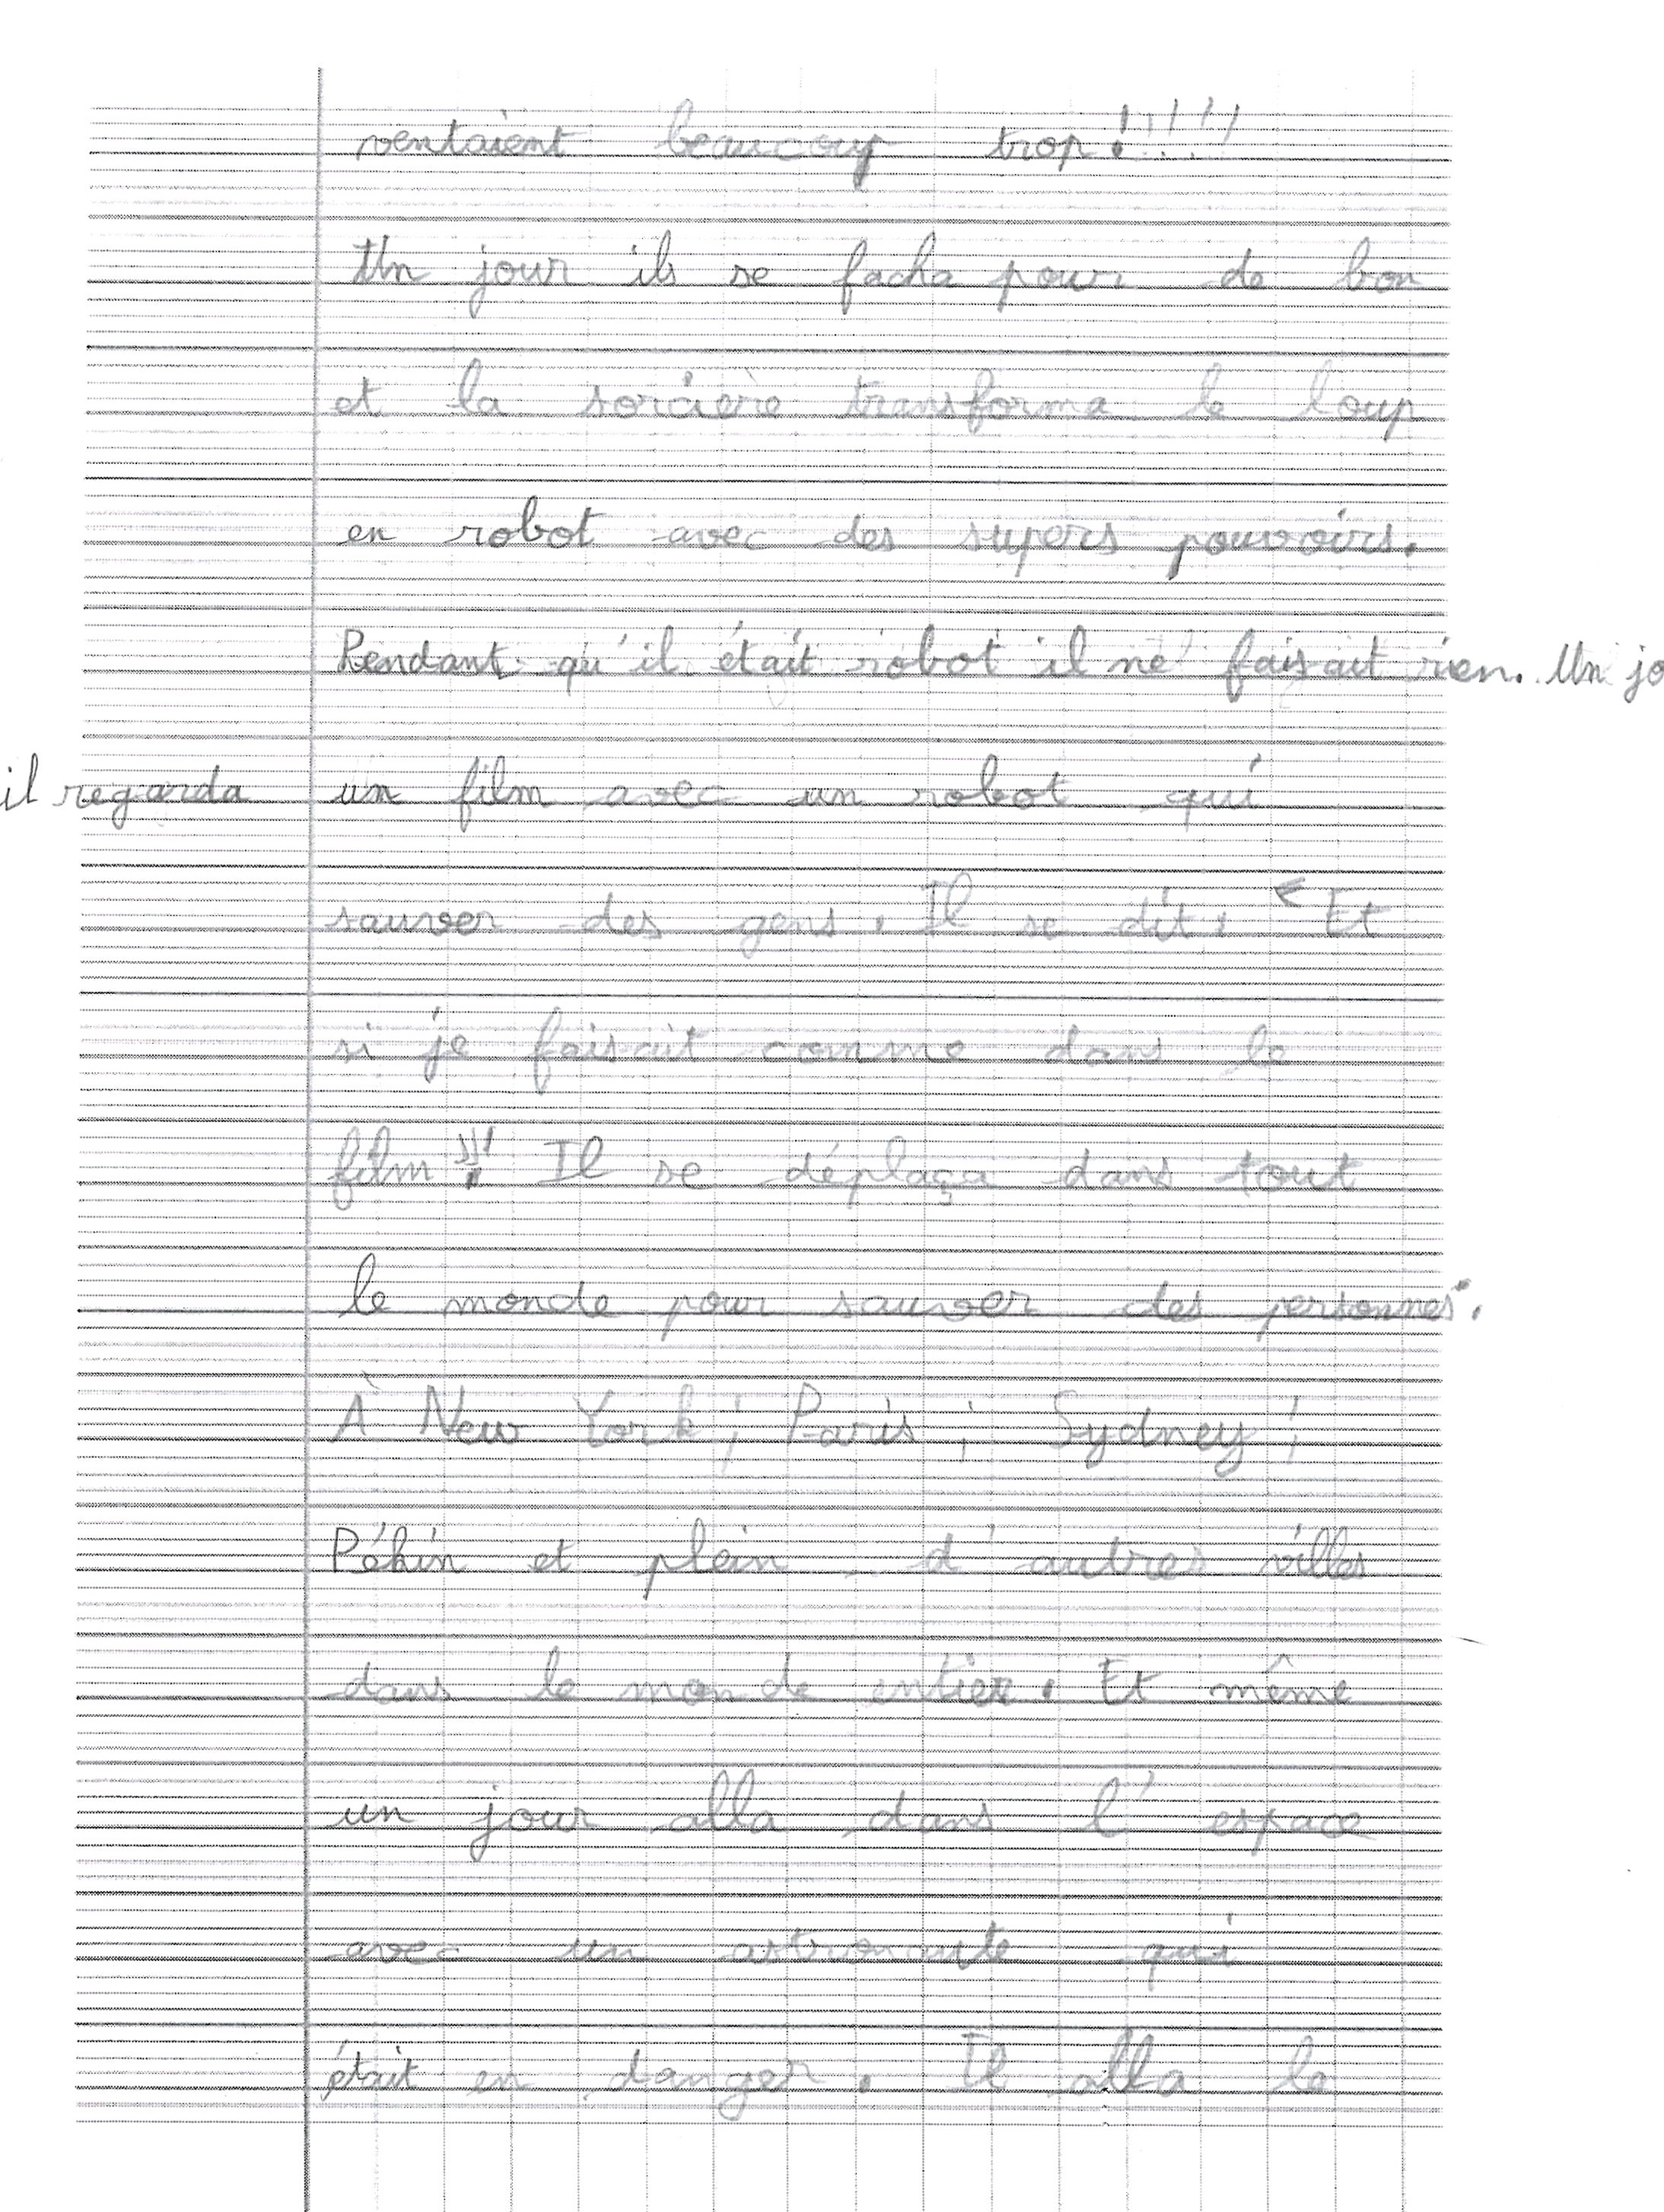 ventaient beaucoup trop!!!!!
Un jour ils se facha pour de bon
et la sorcière transforma le loup
en robot avec des supers pouvoirs.
Pendant qu'il était robot il ne faisait rien. Un jo
il regarda un film avec un robot qui
sauver des gens. Il se dit. " Et
si je faisait comme dans le
film!!! Il se déplaça dans tout
le monde pour sauver des personnes.
À New York ; Paris ; Sydney ;
Pékin et plein d'autres villes
dans le monde entier. Et même
un jour alla dans l'espace
avec un astronaute qui
était en danger. Il alla le